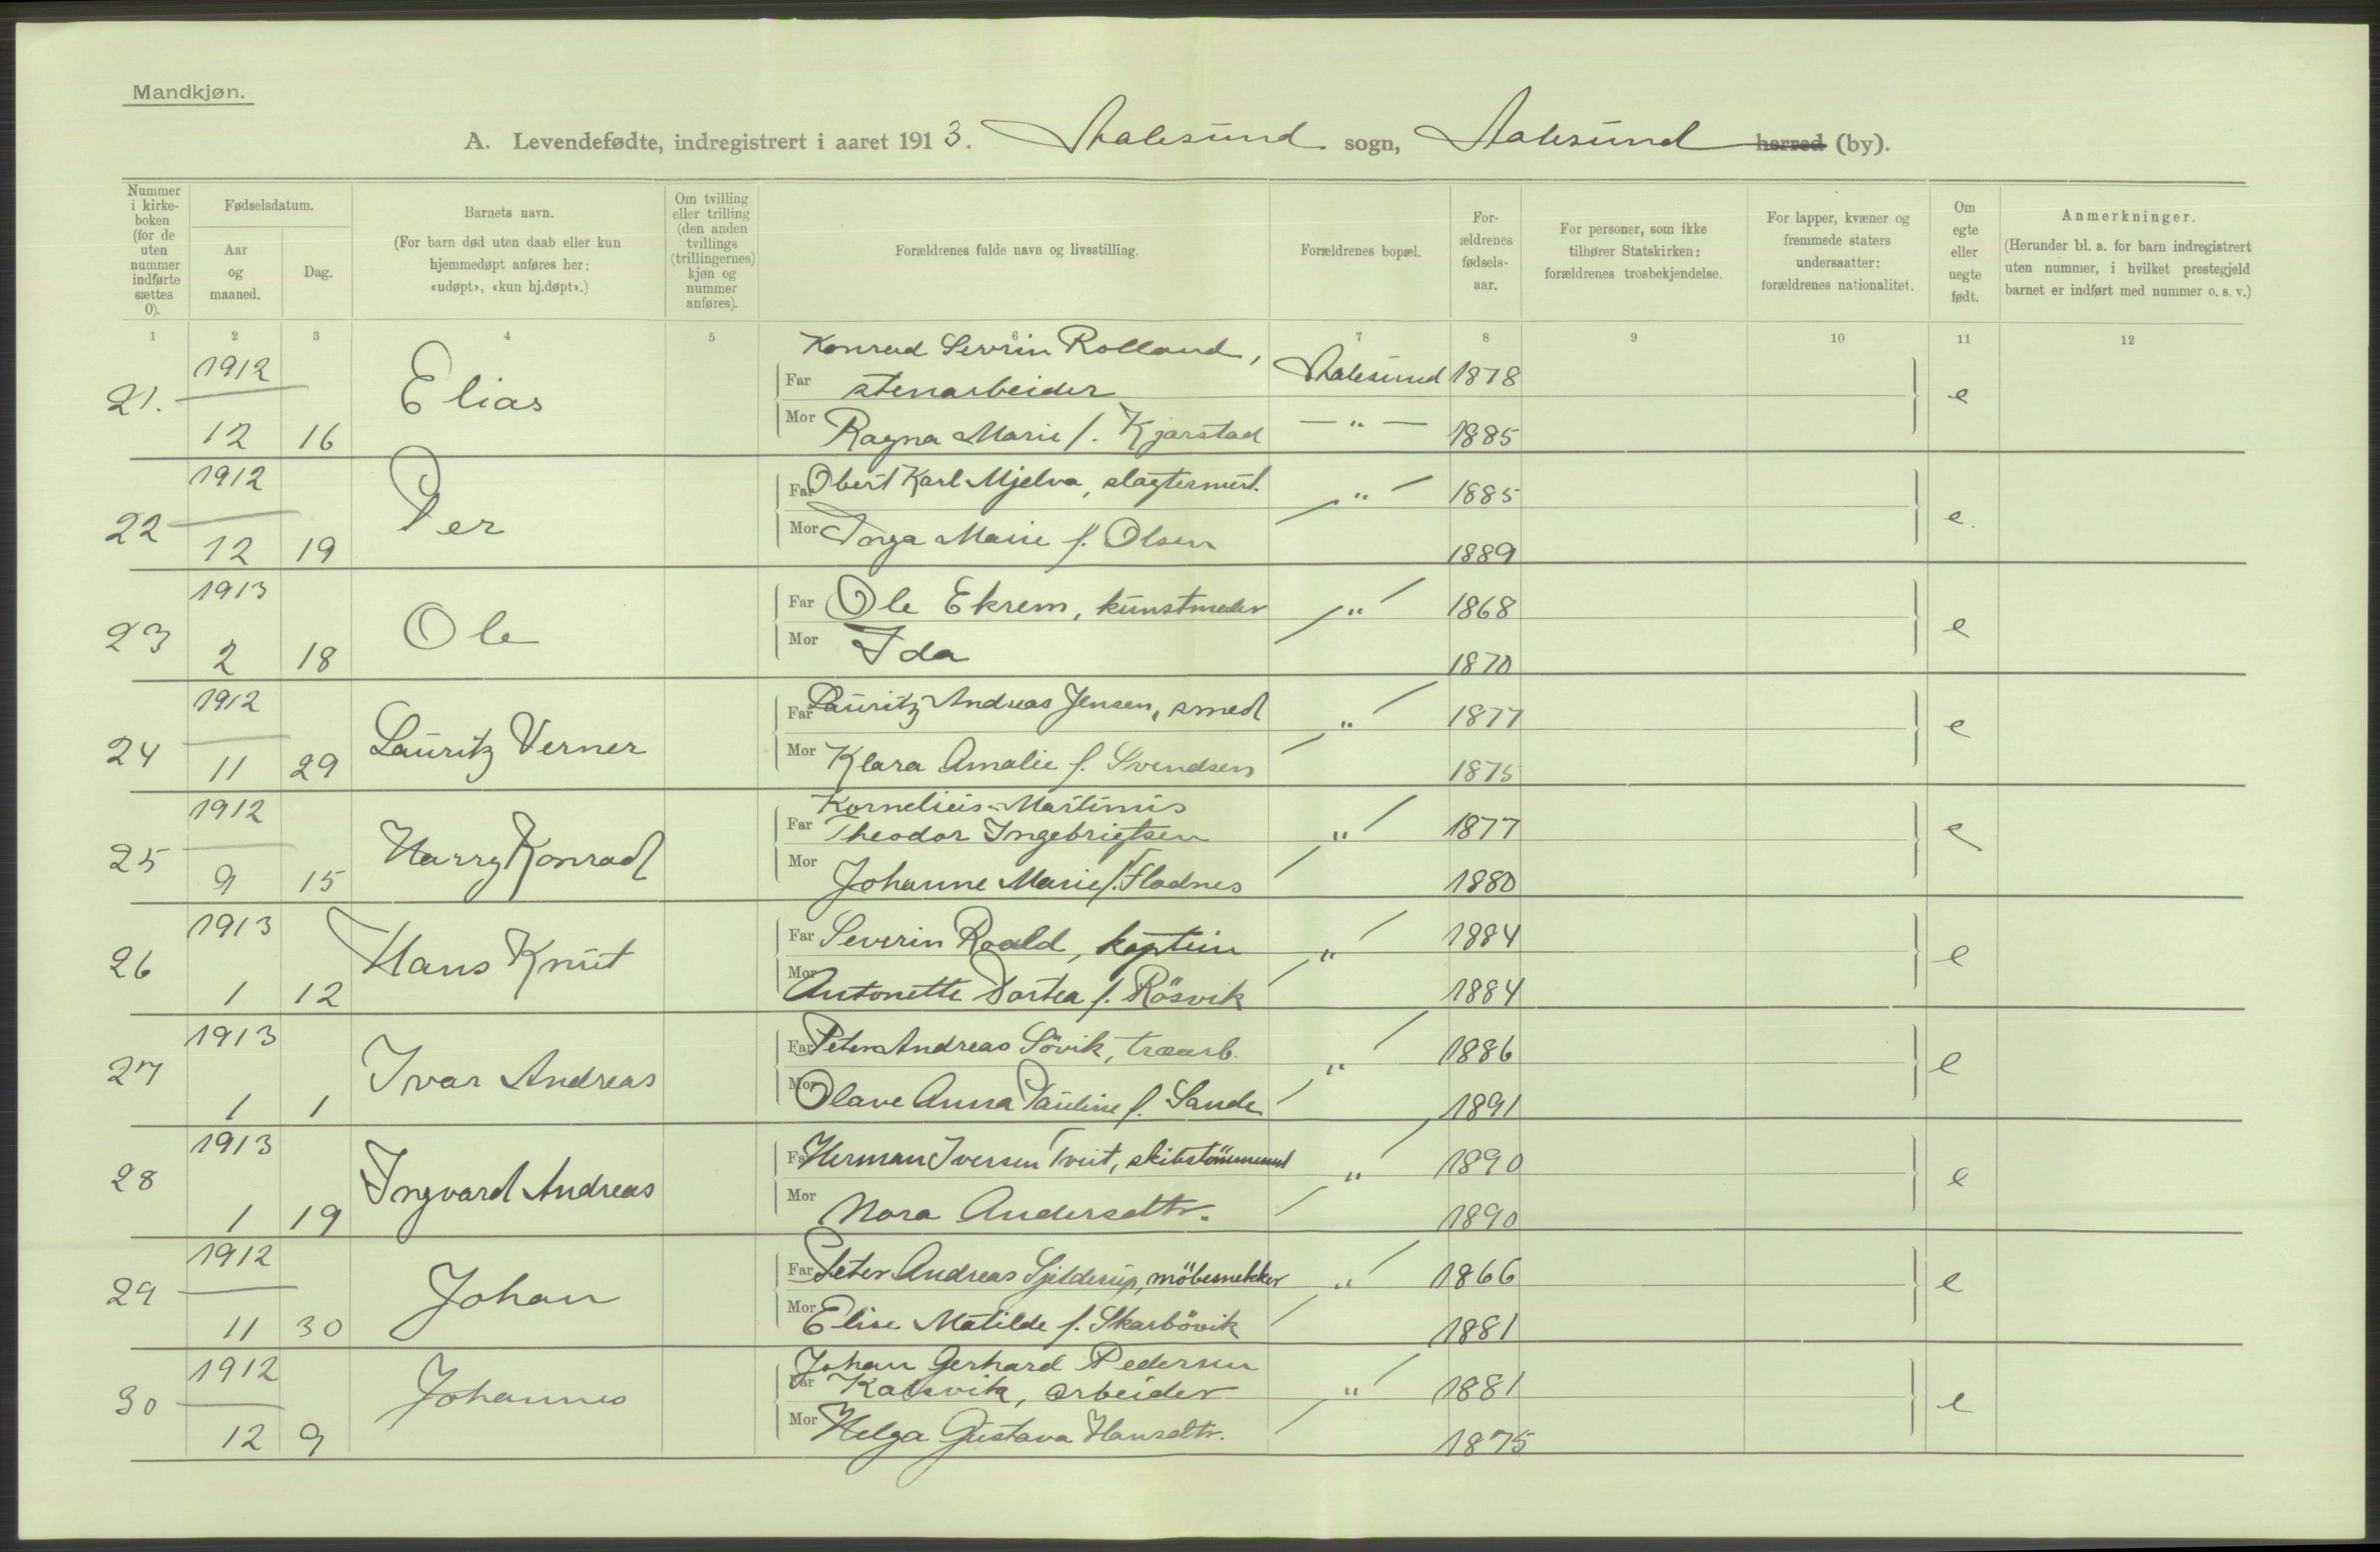 Mandkjøn.
A. Levendefødte, indregistrert i aaret 1913. Aalesund sogn, Aalesund herred (by).
Nummer i kirke-boken (for de uten nummer indførte sættes 0).
Fødselsdatum.
Aar og maaned.
Dag.
Barnets navn.
(For barn død uten daab eller kun hjemmedøpt anføres her: «udøpt», «kun hj.døpt».)
Om tvilling eller trilling (den anden tvillings (trillingernes) kjøn og nummer anføres).
Forældrenes fulde navn og livsstilling.
Forældrenes bopæl.
For-ældrenes fødsels-aar.
For personer, som ikke tilhører Statskirken: forældrenes trosbekjendelse.
For lapper, kvæner og fremmede staters undersaatter: forældrenes nationalitet.
Om egte eller uegte født.
Anmerkninger.
(Herunder bl. a. for barn indregistrert uten nummer, i hvilket prestegjeld barnet er indført med nummer o. s. v.)
1 2 3 4 5 6 7 8 9 10 11 12
21. 1912 12 16 Elias
Far Konrad Sevrin Rolland, stenarbeider Aalesund 1878 e
Mor Ragna Marie f. Kjarstad — " — 1885
22 1912 12 19 Per
Far Obert Karl Mjelva, slagtermest. " 1885 e.
Mor Inga Marie f. Olsen 1889
23 1913 2 18 Ole
Far Ole Ekrem, kunstmaler " 1868 e
Mor Ida 1870
24 1912 11 29 Lauritz Verner
Far Lauritz Andreas Jensen, smed " 1877 e
Mor Klara Amalie f. Svendsen 1875
25 1912 9 15 Harry Konrad
Far Kornelius Martinus Theodor Ingebrigtsen " 1877 e
Mor Johanne Marie f. Flodnes 1880
26 1913 1 12 Hans Knut
Far Severin Roald, kaptein " 1884 e
Mor Antonette Dortea f. Rösvik 1884
27 1913 1 1 Ivar Andreas
Far Peter Andreas Sövik, træarb. " 1886 e
Mor Olave Anna Pauline f. Sande 1891
28 1913 1 19 Ingvard Andreas
Far Herman Iversen Tveit, " 1890 e
Mor Nora Andersdtr. 1890
29 1912 11 30 Johan
Far Peter Andreas Sjelderup, möbesnekker " 1866 e
Mor Elise Matilde f. Skarbövik 1881
30 1912 12 9 Johannes
Far Johan Gerhard Pedersen Kalsvik, arbeider " 1881 e
Mor Helga Gustava Hansdtr. 1875